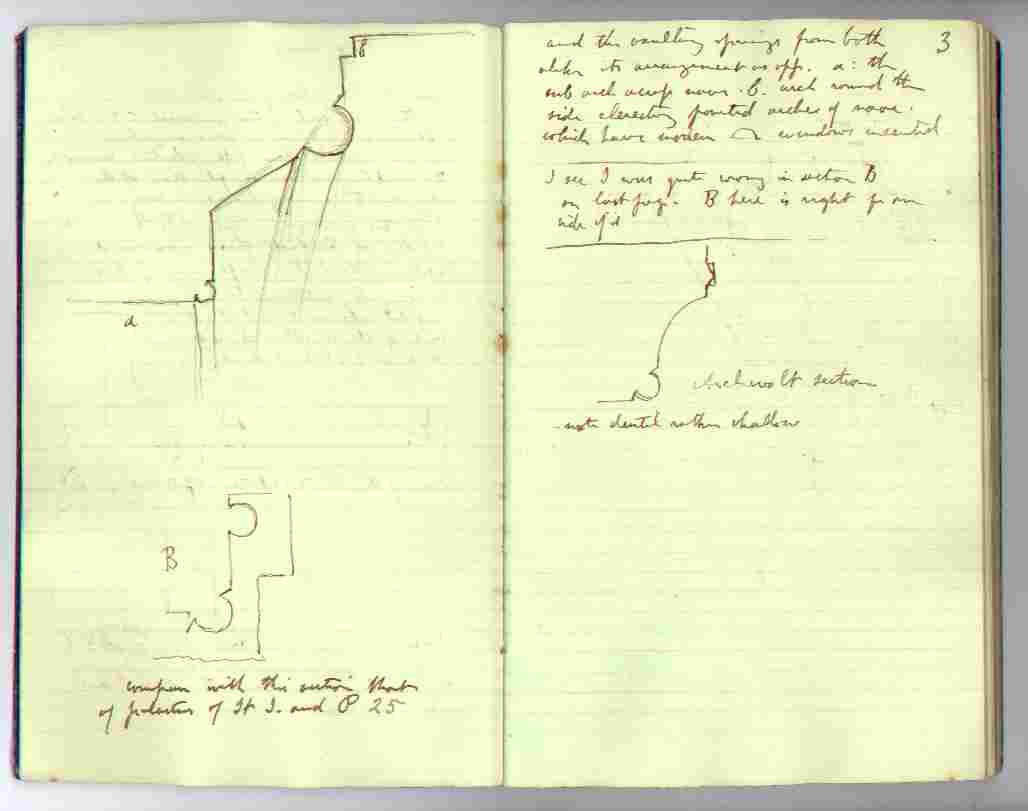 b
a
B
compare with this section that
of pilasters of St J. and P 25
3
and the vaulting springs from both
alike its arrangement as opp. a: the
sub arch across nave. b. arch round the
side clerestory pointed arches of nave.
which have modern windows inserted
I see I was quite wrong in section B
on last page. B here is right from
side of it
Archivolt section
note dentil rather shallow